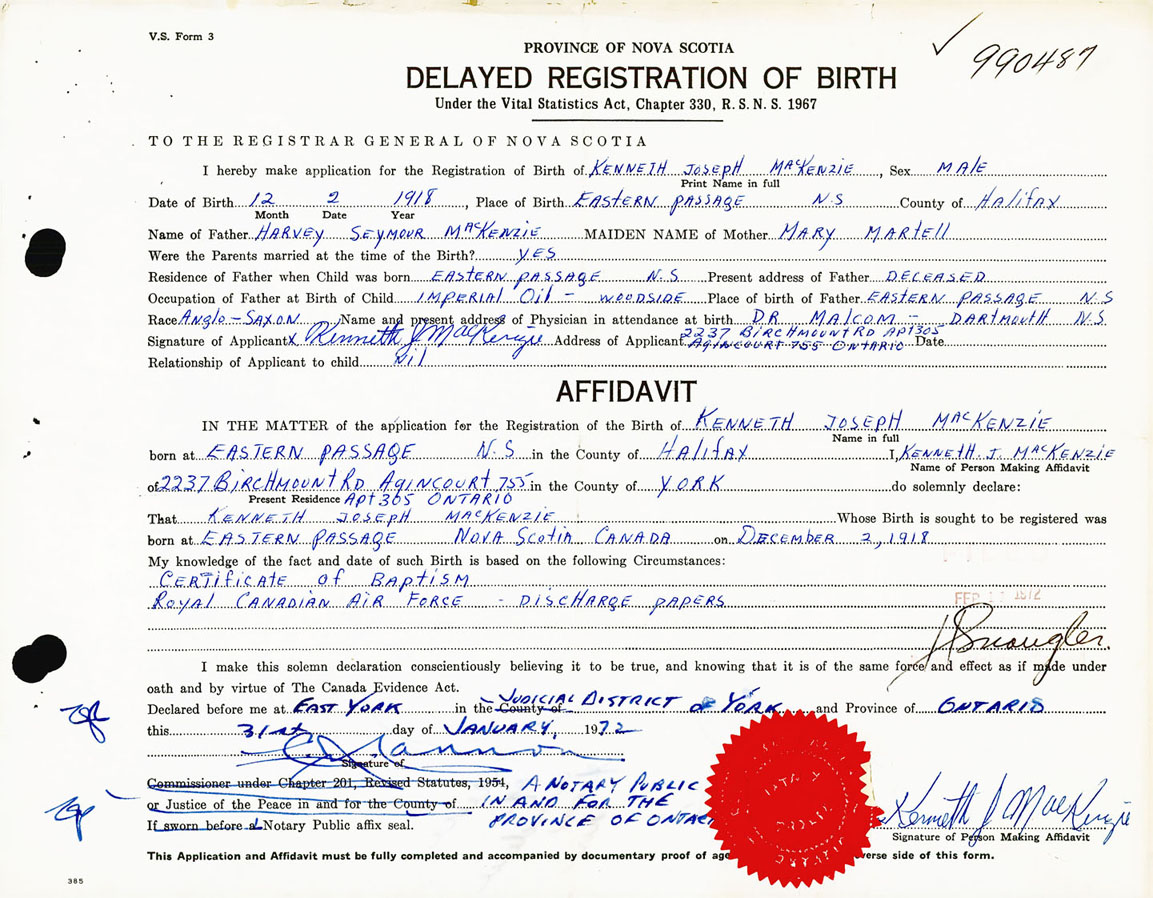 V.S. Form 3
PROVINCE OF NOVA SCOTIA
990487
DELAYED REGISTRATION OF BIRTH
Under the Vital Statistics Act, Chapter 330, R.S.N.S. 1967
TO THE REGISTRAR GENERAL OF NOVA SCOTIA
I hereby make application for the Registration of Birth of KENNETH JOSEPH MACKENZIE, Sex MALE
Print Name in full
Date of Birth 12 2 1918, Place of Birth EASTERN PASSAGE N S County of HALIFAX
Month Date Year
Name of Father HARVEY SEYMOUR MACKENZIE MAIDEN NAME of Mother MARY MARTELL
Were the Parents married at the time of the Birth? YES
Residence of Father when Child was born EASTERN PASSAGE N.S Present address of Father DECEASED
Occupation of Father at Birth of Child IMPERIAL OIL - WOODSIDE Place of birth of Father EASTERN PASSAGE N S
Race ANGLO-SAXON Name and present address of Physician in attendance at birth DR MALCOM - DARTMOUTH N.S.
Signature of Applicant X Kenneth J MacKenzie Address of Applicant 2237 BIRCHMOUNT RD APT 305 AGINCOURT 755 ONTARIO Date
Relationship of Applicant to child Nil
AFFIDAVIT
IN THE MATTER of the application for the Registration of the Birth of KENNETH JOSEPH MACKENZIE
Name in full
born at EASTERN PASSAGE N.S in the County of HALIFAX I, KENNETH. J. MACKENZIE
Name of Person Making Affidavit
of 2237 BIRCHMOUNT RD AGINCOURT 755 in the County of YORK do solemnly declare:
Present Residence APT 305 ONTARIO
That KENNETH JOSEPH MACKENZIE Whose Birth is sought to be registered was
born at EASTERN PASSAGE NOVA SCOTIA CANADA on DECEMBER 2, 1918
My knowledge of the fact and date of such Birth is based on the following Circumstances:
CERTIFICATE OF BAPTISM
ROYAL CANADIAN AIR FORCE - DISCHARGE PAPERS
FEB 1972
I make this solemn declaration conscientiously believing it to be true, and knowing that it is of the same force and effect as if made under
oath and by virtue of The Canada Evidence Act.
Declared before me at EAST YORK in the County of JUDICIAL DISTRICT OF YORK and Province of ONTARIO
this 31st day of JANUARY, 1972
Signature of
Commissioner under Chapter 201, Revised Statutes, 1954, A NOTARY PUBLIC
or Justice of the Peace in and for the County of IN AND FOR THE
If sworn before a Notary Public affix seal. PROVINCE OF ONTAR
Kenneth J MacKenzie
Signature of Person Making Affidavit
This Application and Affidavit must be fully completed and accompanied by documentary proof of age verse side of this form.
385